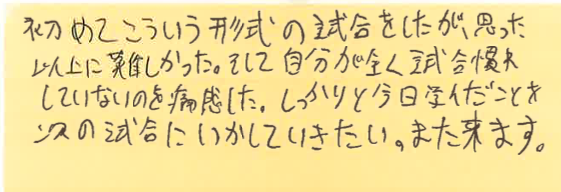 初めてこういう形式の試合をしたが、思った
以上に難しかった。そして自分が全く試合慣れ
していないのを痛感した。しっかりと今日学んだことを
次の試合にいかしていきたい。また来ます。